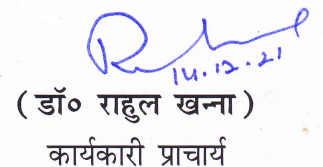 14.12.21
( डॉ० राहुल खन्ना )
कार्यकारी प्राचार्य